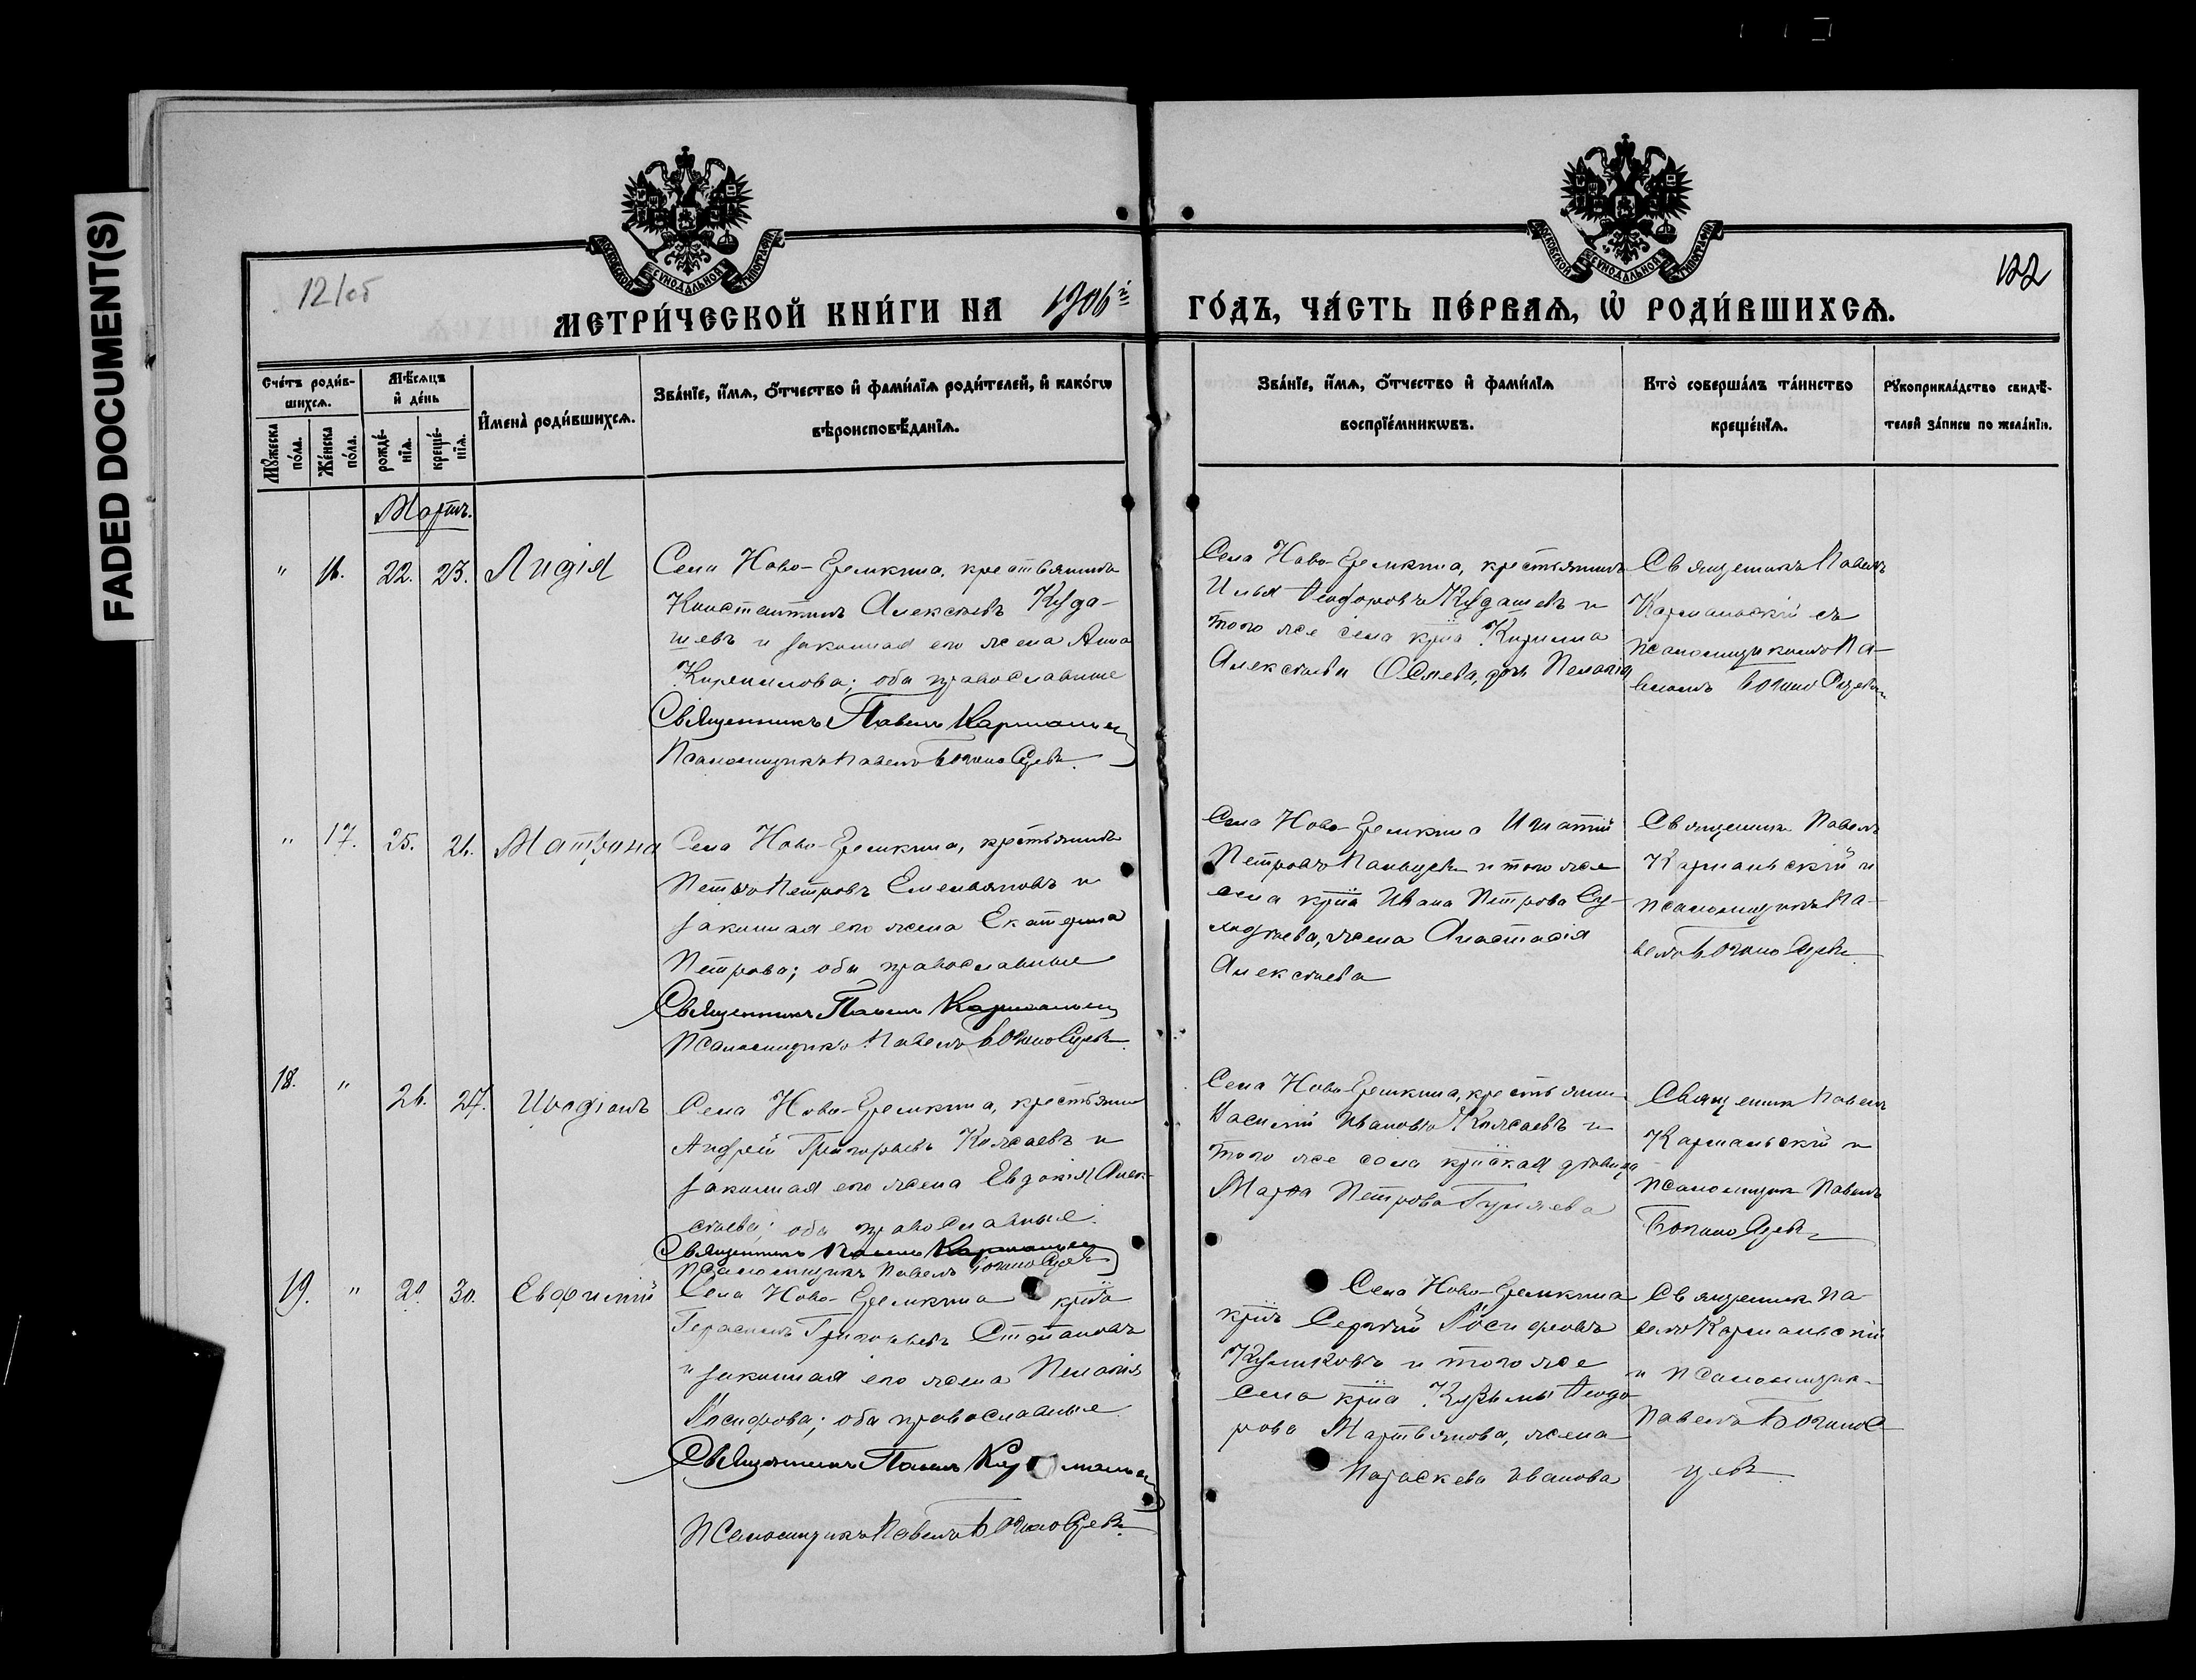 FADED DOCUMENT(S)
121об
122
МОСКОВСКОЙ СѴНОДАЛЬНОЙ ТИПОГРАФІИ
МОСКОВСКОЙ СѴНОДАЛЬНОЙ ТИПОГРАФІИ
МЕТРИ́ЧЕСКОЙ КНИ́ГИ НА 1906й ГО́ДЪ, ЧА́СТЬ ПЕ́РВАѦ, Ѡ҆ РОДИ́ВШИХСѦ.
Сче́тъ роди́в-
шихсѧ.
Мѹ́жеска по́ла.
Же́нска по́ла.
Мѣ́сѧцъ
и҆ де́нь
рожде́-
нїѧ.
креще́-
нїѧ.
И҆мена̀ роди́вшихсѧ.
Зва́нїе, и҆́мѧ, ѻ҆́тчество и҆ фами́лїѧ роди́телей, и҆ како́гѡ
вѣроисповѣ́данїѧ.
Зва́нїе, и҆́мѧ, ѻ҆́тчество и҆ фами́лїѧ
воспрїе́мникѡвъ.
Кто̀ соверша́лъ та́инство
креще́нїѧ.
Рѹкоприкла́дство свидѣ́-
телей за́писи по жела́нїю.
Мартъ.
" 16. 22. 23. Лидія
Села Ново-Еремкина, крестьянинъ
Константинъ Алексѣевъ Куда-
шевъ и законная его жена Анна
Кириллова; оба православные
Священникъ Павелъ Кармальск
Псаломщикъ Павелъ
Села Ново-Еремкина, крестьянинъ
Илья Ѳеодоровъ Кудашевъ и
того же села кр̃на Кирилла
Алексѣева дочь Пелагія
Священникъ Павелъ
Кармальскій съ
псаломщикомъ Па-
вломъ
" 17. 25. 26. Матрона
Села Ново-Еремкина, крестьянинъ
Петръ Петровъ Емельяновъ и
законная его жена Екатерина
Петрова; оба православные
Священникъ Павелъ Кармальск
Псаломщикъ Павелъ
Села Ново-Еремкина Игнатій
Петровъ и того же
села кр̃на Ивана Петрова
жена Анастасія
Алексѣева
Священникъ Павелъ
Кармальскій и
псаломщикъ Па-
велъ
18. " 26. 27. Иродіонъ
Села Ново-Еремкина, крестьянинъ
Андрей Григорьевъ Коржаевъ и
законная его жена Евдокія Алек-
сѣева; оба православные.
Священникъ Павелъ Кармальск
Псаломщикъ Павелъ
Села Ново-Еремкина, крестьянинъ
Василій Ивановъ и
того же села кр̃нская дѣвица
Марѳа Петрова Гуляева
Священникъ Павелъ
Кармальскій и
псаломщикъ Павелъ
19. " 29. 30. Евфимій
Села Ново-Еремкина кр̃нъ
Герасимъ Григорьевъ Степановъ
и законная его жена Пелагія
Іосифова; оба православные
Священникъ Павелъ
Псаломщикъ Павелъ
Села Ново-Еремкина
кр̃нъ Сергѣй Іосифовъ
Куликовъ и того же
села кр̃на Кузьмы Ѳеодо-
рова Мартьянова, жена
Параскева Иванова
Священникъ Па-
велъ Кармальскій
и псаломщикъ
Павелъ